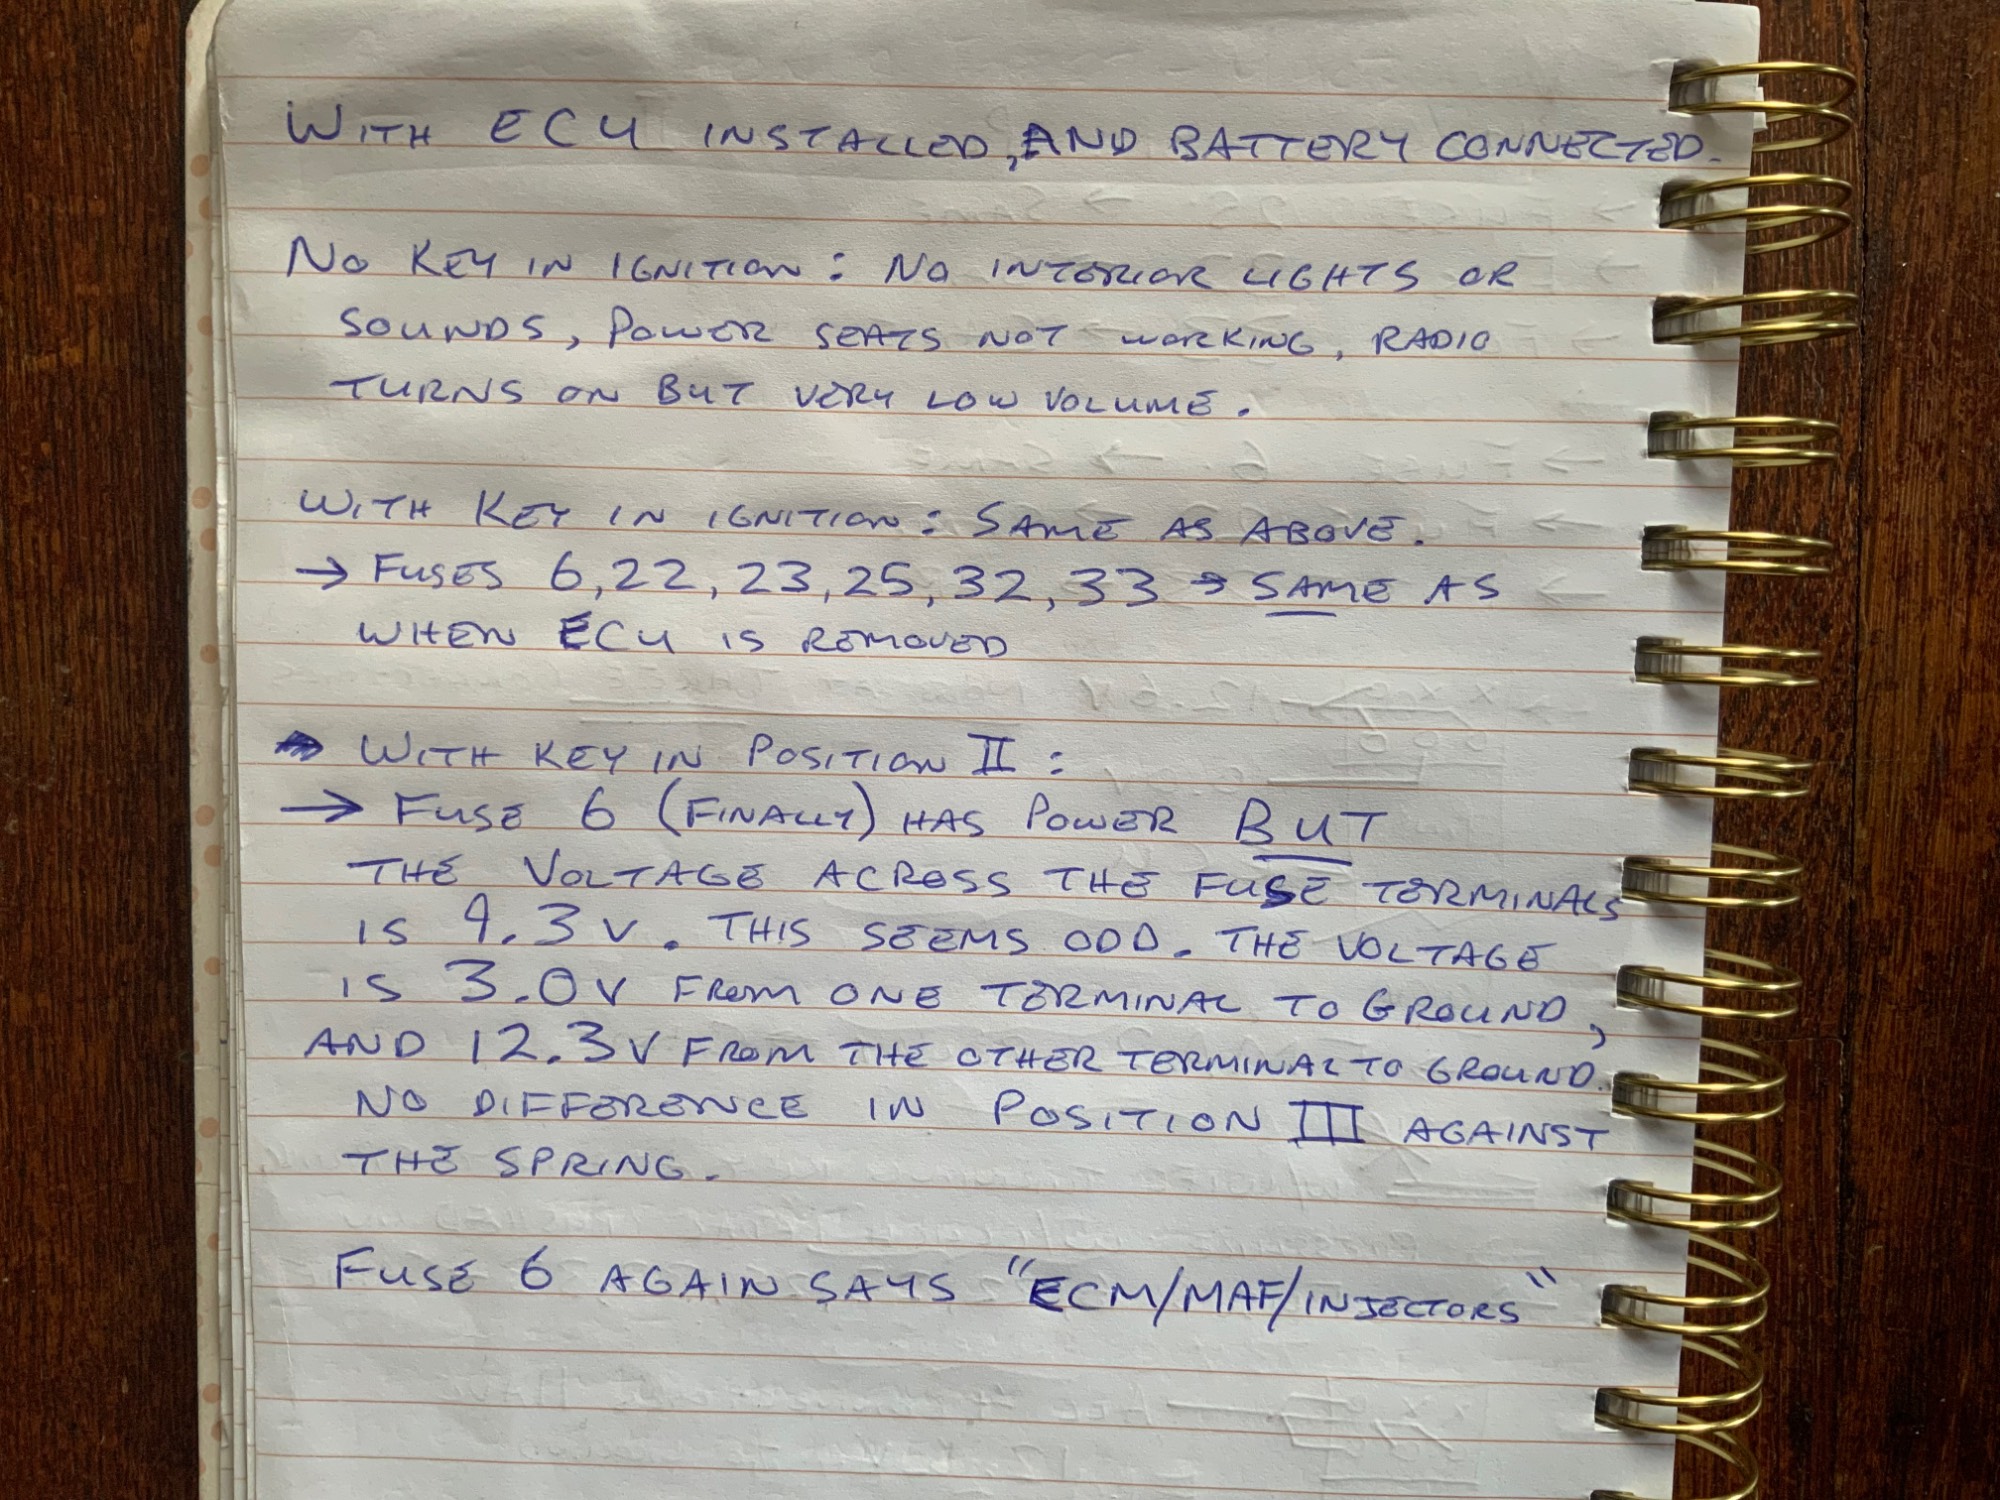 WITH ECU INSTALLED, AND BATTERY CONNECTED.
NO KEY IN IGNITION: NO INTERIOR LIGHTS OR
SOUNDS, POWER SEATS NOT WORKING, RADIO
TURNS ON BUT VERY LOW VOLUME.
WITH KEY IN IGNITION: SAME AS ABOVE.
→ FUSES 6, 22, 23, 25, 32, 33 → SAME AS
WHEN ECU IS REMOVED
→ WITH KEY IN POSITION II:
→ FUSE 6 (FINALLY) HAS POWER BUT
THE VOLTAGE ACROSS THE FUSE TERMINALS
IS 9.3V. THIS SEEMS ODD. THE VOLTAGE
IS 3.0V FROM ONE TERMINAL TO GROUND,
AND 12.3V FROM THE OTHER TERMINAL TO GROUND.
NO DIFFERENCE IN POSITION III AGAINST
THE SPRING.
FUSE 6 AGAIN SAYS "ECM/MAF/INJECTORS"